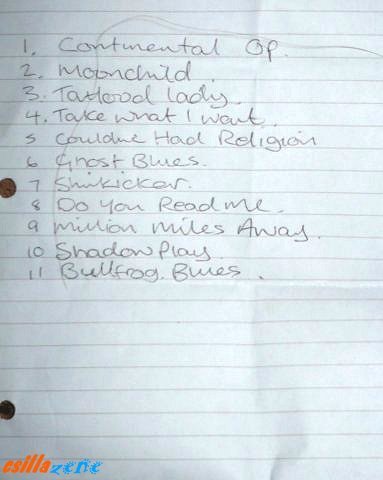 1. Continental Op.
2. Moonchild.
3. Tattooed lady.
4. Take what I want.
5 Couldve Had Religion
6 Ghost Blues.
7 Shinkicker.
8 Do You Read Me.
9 Million Miles Away.
10 Shadow Play.
11 Bullfrog Blues.
csillazene